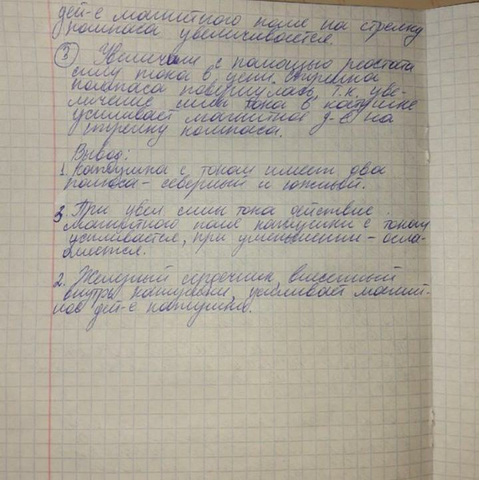 дей-е магнитного поля на стрелку
компаса увеличивается.
3 Увеличили с помощью реостата
силу тока в цепи. Стрелка
компаса повернулась, т.к. уве-
личение силы тока в катушке
усиливает магнитное д-е на
стрелку компаса.
Вывод:
1. Катушка с током имеет два
полюса - северный и южный.
3. При увел силы тока действие
магнитного поля катушки с током
усиливается, при уменьшении - осла-
бляется.
2. Железный сердечник, внесенный
внутрь катушки, усиливает магнит-
ное дей-е катушки.